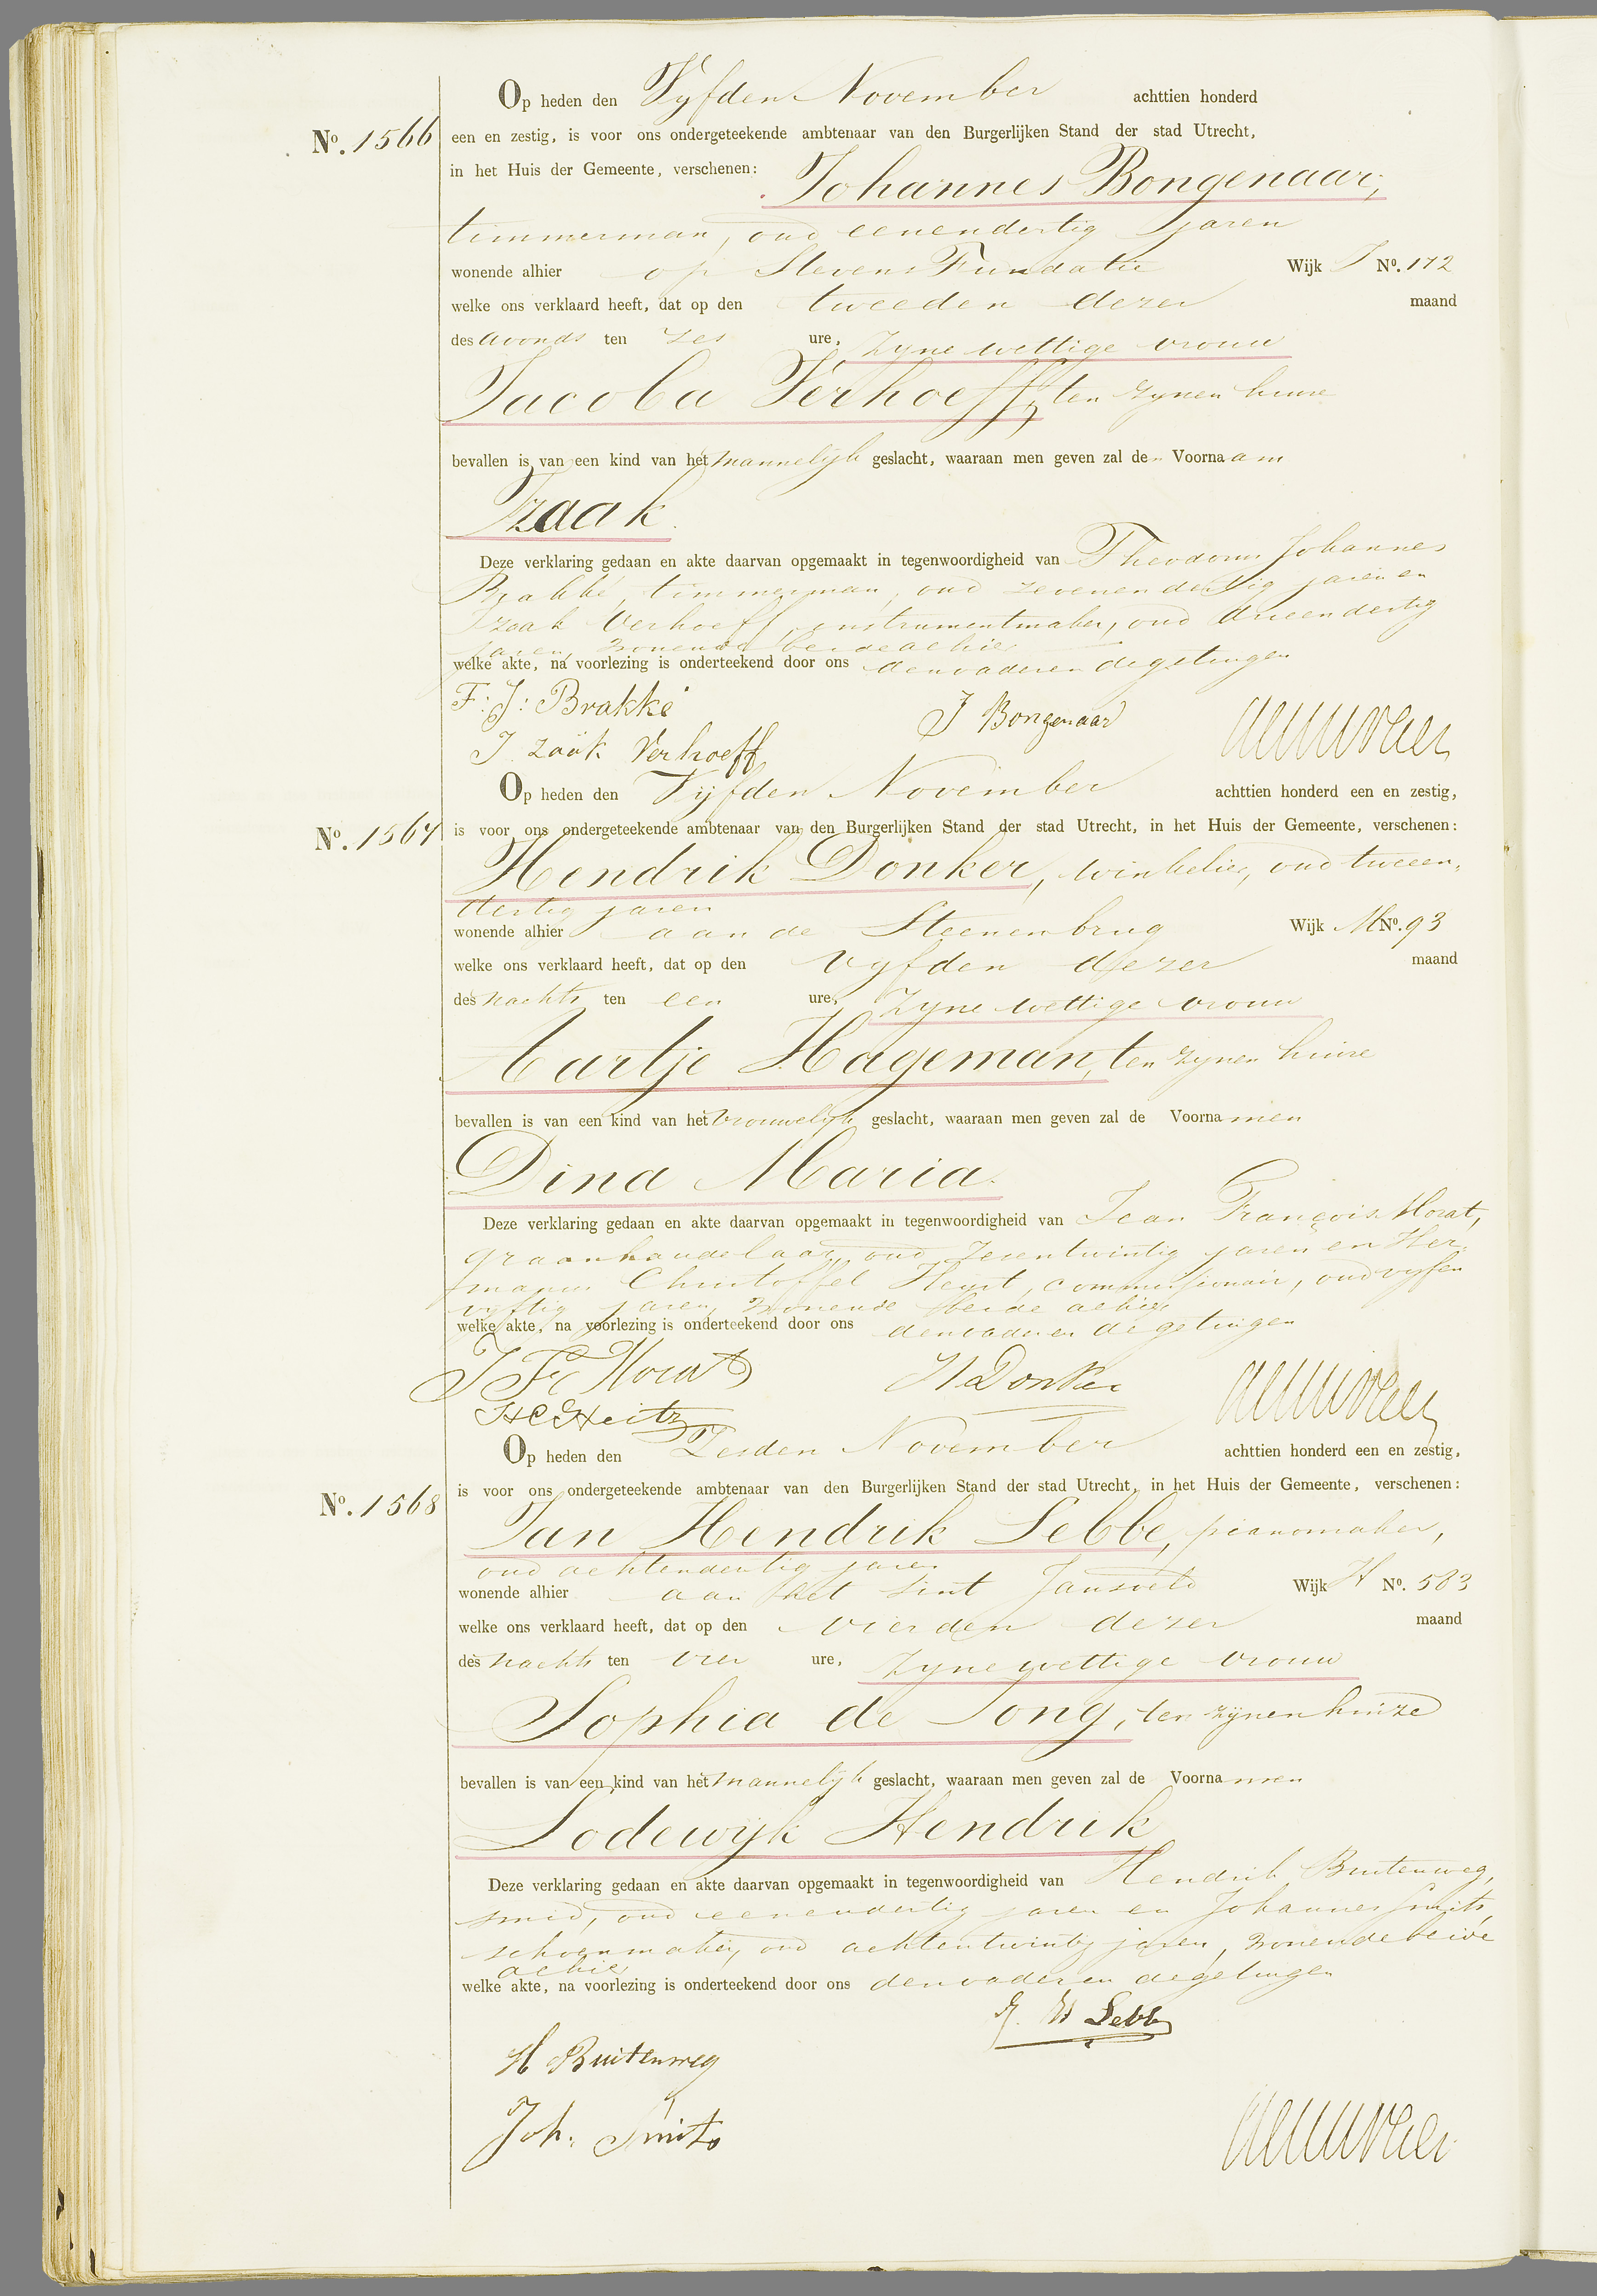 Op heden den Vyfden November achttien honderd
No. 1566 een en zestig, is voor ons ondergeteekende ambtenaar van den Burgerlijken Stand der stad Utrecht,
in het Huis der Gemeente, verschenen: Johannes Bongenaar,
timmerman, oud eenendertig jaren
wonende alhier op Stevens Fundatie Wijk I No. 172
welke ons verklaard heeft, dat op den tweeden dezer maand
des avonds ten zes ure, zyne wettige vrouw
Jacoba Verhoeff, ten zynen huize
bevallen is van een kind van het mannelijk geslacht, waaraan men geven zal den Voornaam
Izaak
Deze verklaring gedaan en akte daarvan opgemaakt in tegenwoordigheid van Theodorus Johannes
Brakké, timmerman, oud zevenendertig jaren en
Izaak Verhoeff, instrumentmaker, oud drieendertig
jaren, wonende beide alhier
welke akte, na voorlezing is onderteekend door ons den vader en de getuigen
F: J: Brakké J Bongenaar
I zaäk Verhoeff
Op heden den Vijfden November achttien honderd een en zestig,
No. 1567 is voor ons ondergeteekende ambtenaar van den Burgerlijken Stand der stad Utrecht, in het Huis der Gemeente, verschenen:
Hendrik Donker, winkelier, oud tweeen-
dertig jaren
wonende alhier aan de Steenenbrug Wijk M No. 93
welke ons verklaard heeft, dat op den vyfden dezer maand
des nachts ten een ure, zyne wettige vrouw
Aartje Hageman, ten zynen huize
bevallen is van een kind van het vrouwelijk geslacht, waaraan men geven zal de Voornamen
Dina Maria.
Deze verklaring gedaan en akte daarvan opgemaakt in tegenwoordigheid van Jean François Morat,
graanhandelaar, oud zesentwintig jaren en Her-
manus Christoffel Heyst, commissionair, oud vyfen
vyftig jaren, wonende beide alhier
welke akte, na voorlezing is onderteekend door ons den vader en de getuigen
J F Morat H Donker
H C Heitz
Op heden den Zesden November achttien honderd een en zestig,
No. 1568 is voor ons ondergeteekende ambtenaar van den Burgerlijken Stand der stad Utrecht, in het Huis der Gemeente, verschenen:
Jan Hendrik Lebbe, pianomaker,
oud achtendertig jaren
wonende alhier aan het Sint Jansveld Wijk H No. 583
welke ons verklaard heeft, dat op den vierden dezer maand
des nachts ten vier ure, zyne wettige vrouw
Sophia de Jong, ten zijnen huize
bevallen is van een kind van het mannelijk geslacht, waaraan men geven zal de Voornamen
Lodewijk Hendrik
Deze verklaring gedaan en akte daarvan opgemaakt in tegenwoordigheid van Hendrik Buitenweg,
smid, oud eenendertig jaren en Johannes Smits,
schoenmaker, oud achtentwintig jaren, wonende beide
alhier
welke akte, na voorlezing is onderteekend door ons den vader en de getuigen
J. H Lebbe
H Buitenweg
Joh. Smits